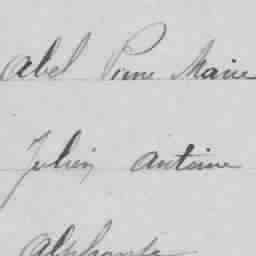 Abel Pierre Marie
Julien Antoine
Alphonse